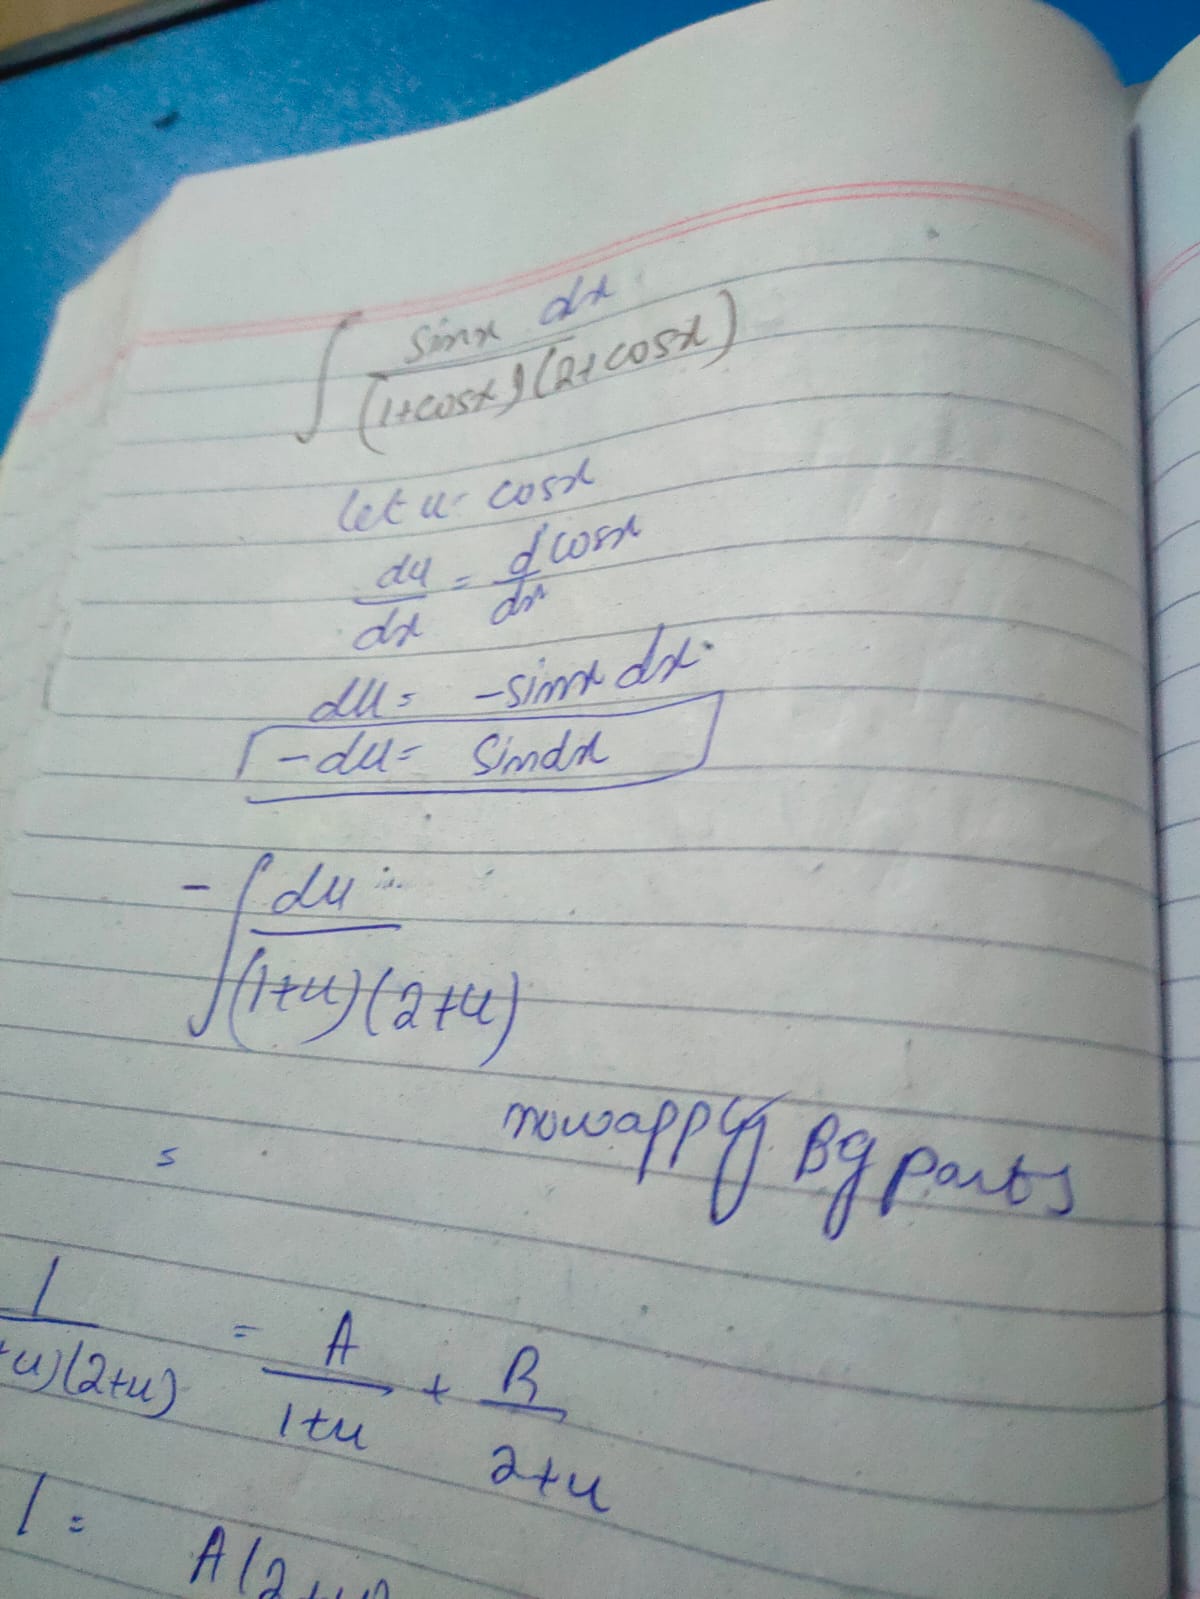 ∫ sinx dx / (1+cosx)(2+cosx)
let u = cosx
du/dx = d cosx/dx
du = -sinx dx.
-du = Sindx
- ∫ du / (1+u)(2+u)
now apply By parts
=
1/(+u)(2+u) = A/1+u + B/2+u
1 = A(2+u)